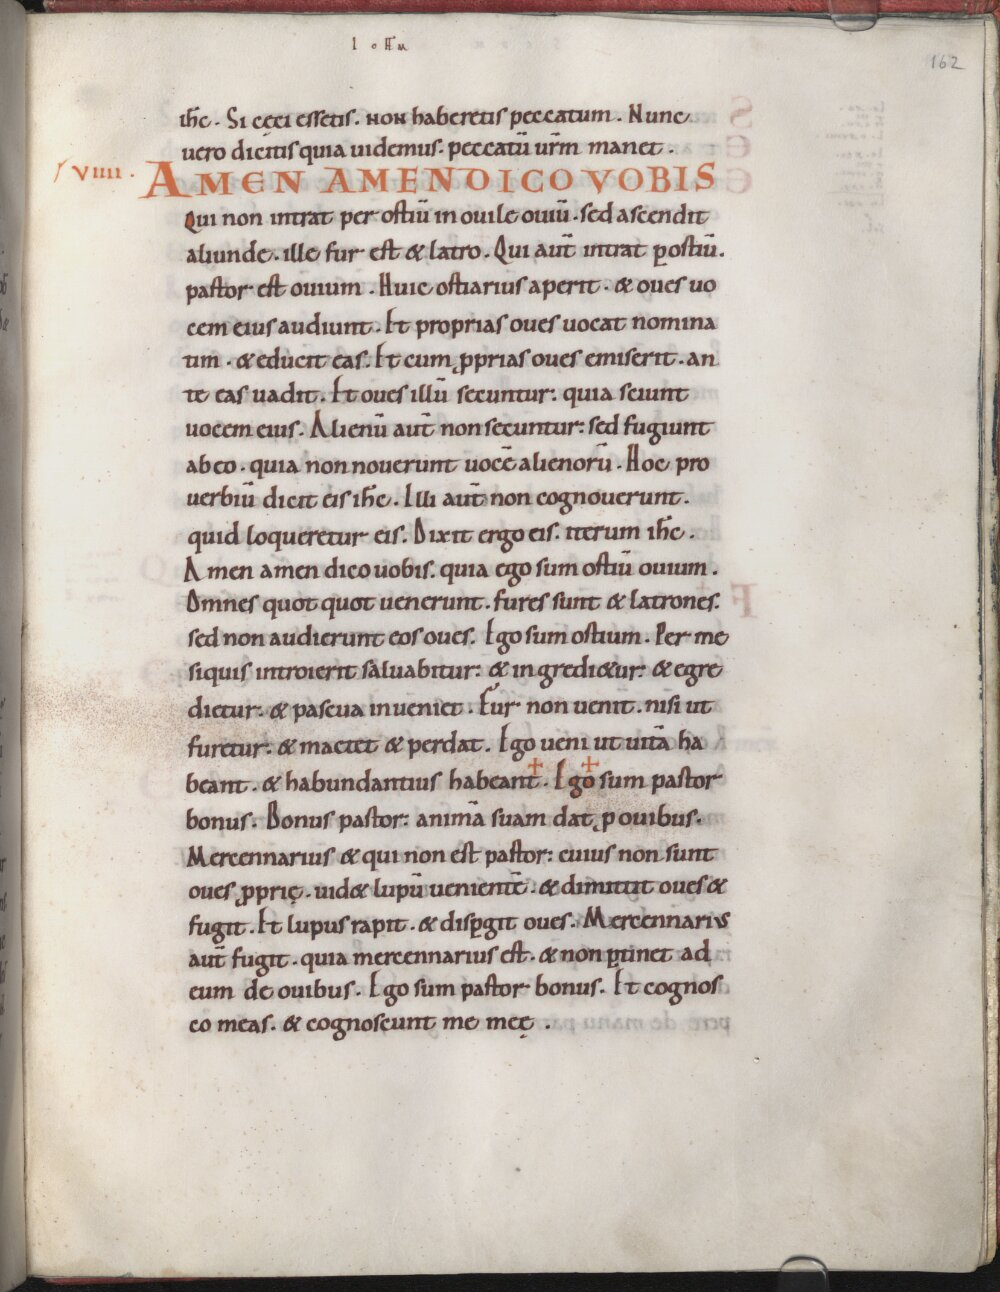 IOHAN
162
ihc. Si cęci essetis. non haberetis peccatum. Nunc
uero dicitis quia uidemus. peccatū urm̄ manet.
VIIII.
AMEN AMEN DICO VOBIS
Qui non intrat per ostiū in ouile ouiū. sed ascendit
aliunde. ille fur est & latro. Qui aut̄ intrat ꝑ ostiū.
pastor est ouium. Huic ostiarius aperit. & oues uo
cem eius audiunt. Et proprias oues uocat nomina
tim. & educit eas. Et cum ꝓprias oues emiserit. an
te eas uadit. Et oues illū secuntur: quia sciunt
uocem eius. Alienū aut̄ non secuntur: sed fugiunt
ab eo. quia non nouerunt uocē alienorū. Hoc pro
uerbiū dicit eis ihc̄. Illi aut̄ non cognouerunt.
quid loqueretur eis. Dixit ergo eis. iterum ihc̄.
Amen amen dico uobis. quia ego sum ostiū ouium.
Omnes quot quot uenerunt. fures sunt & latrones.
sed non audierunt eos oues. Ego sum ostium. Per me
siquis introierit saluabitur: & ingredi&ur: & egre
dietur. & pascua inueniet. Fur non uenit. nisi ut
furetur. & mactet & perdat. Ego ueni ut uitā ha
beant. & habundantius habeant. Ego sum pastor
bonus. Bonus pastor: animā suam dat ꝓ ouibus.
Mercennarius & qui non est pastor: cuius non sunt
oues ꝓprię. uid& lupū uenientē. & dimittit oues &
fugit. Et lupus rapit. & disꝑgit oues. Mercennarius
aut̄ fugit. quia mercennarius est. & non ꝑtinet ad
eum de ouibus. Ego sum pastor bonus. Et cognos
co meas. & cognoscunt me meę.